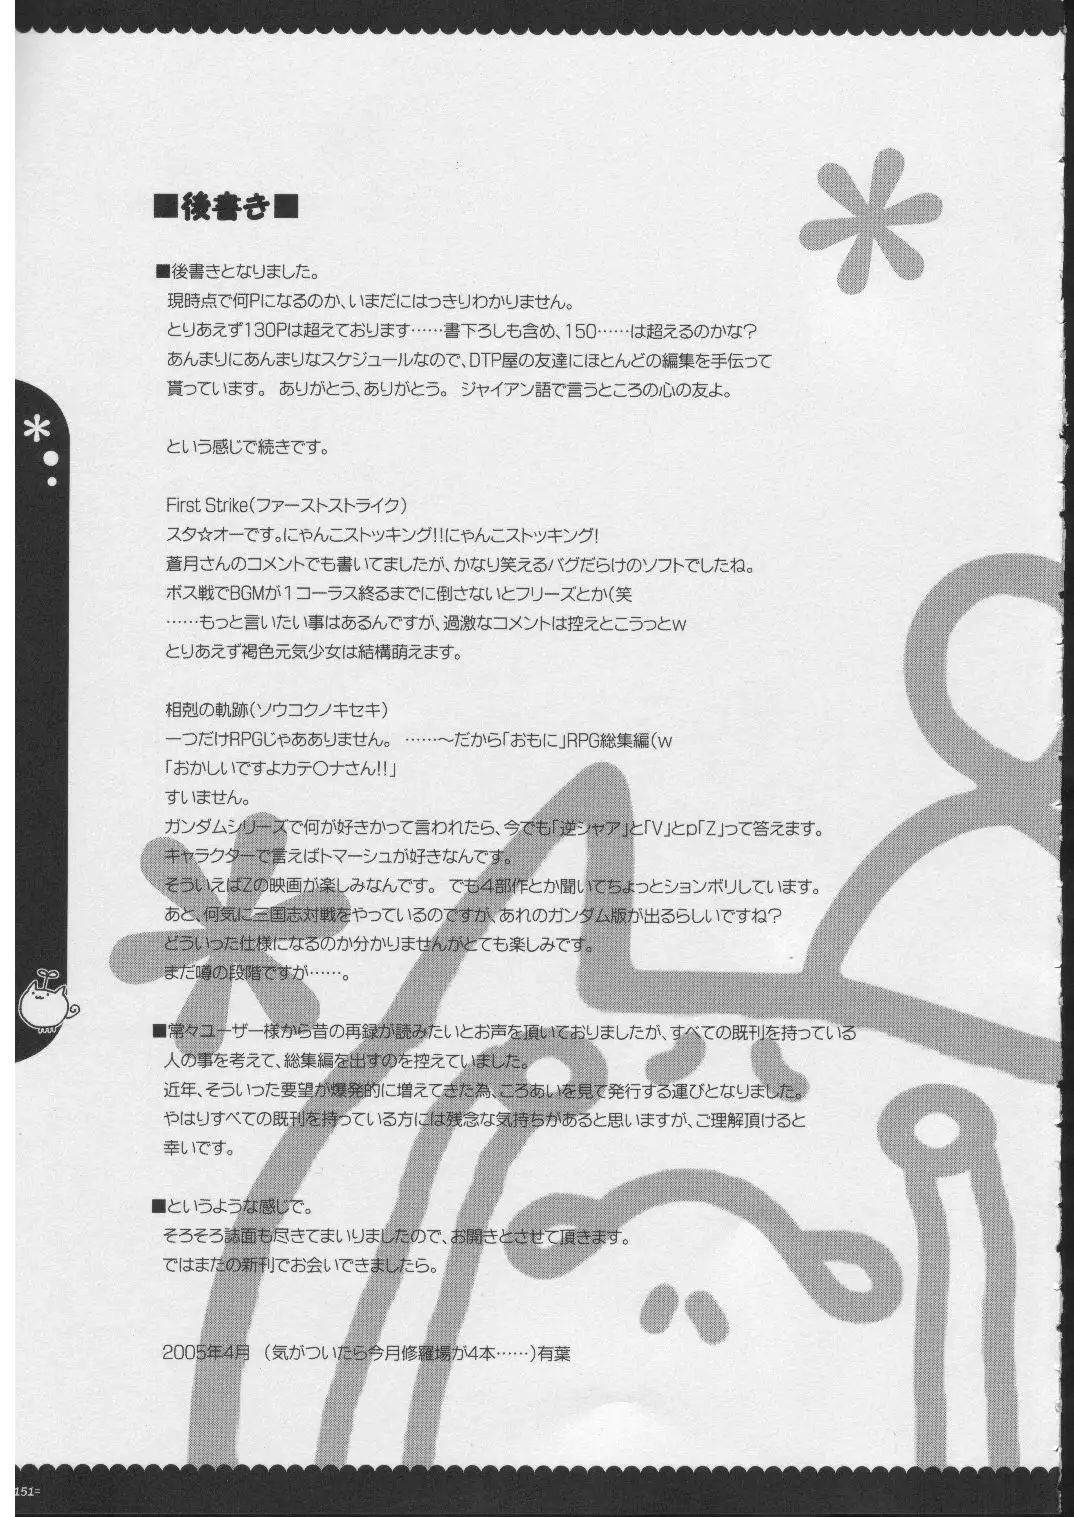 ■後書き■
■後書きとなりました。
現時点で何Pになるのか、いまだにはっきりわかりません。
とりあえず130Pは超えております……書下ろしも含め、150……は超えるのかな?
あんまりにあんまりなスケジュールなので、DTP屋の友達にほとんどの編集を手伝って
貰っています。 ありがとう、ありがとう。 ジャイアン語で言うところの心の友よ。
という感じで続きです。
First Strike(ファーストストライク)
スタ☆オーです。にゃんこストッキング!!にゃんこストッキング!
蒼月さんのコメントでも書いてましたが、かなり笑えるバグだらけのソフトでしたね。
ボス戦でBGMが1コーラス終るまでに倒さないとフリーズとか(笑
……もっと言いたい事はあるんですが、過激なコメントは控えとこうっとw
とりあえず褐色元気少女は結構萌えます。
相剋の軌跡(ソウコクノキセキ)
一つだけRPGじゃあありません。 ……〜だから「おもに」RPG総集編(w
「おかしいですよカテ○ナさん!!」
すいません。
ガンダムシリーズで何が好きかって言われたら、今でも「逆シャア」と「V」とp「Z」って答えます。
キャラクターで言えばトマーシュが好きなんです。
そういえばZの映画が楽しみなんです。 でも4部作とか聞いてちょっとションボリしています。
あと、何気に三国志対戦をやっているのですが、あれのガンダム版が出るらしいですね?
どういった仕様になるのか分かりませんがとても楽しみです。
まだ噂の段階ですが……。
■常々ユーザー様から昔の再録が読みたいとお声を頂いておりましたが、すべての既刊を持っている
人の事を考えて、総集編を出すのを控えていました。
近年、そういった要望が爆発的に増えてきた為、ころあいを見て発行する運びとなりました。
やはりすべての既刊を持っている方には残念な気持ちがあると思いますが、ご理解頂けると
幸いです。
■というような感じで。
そろそろ誌面も尽きてまいりましたので、お開きとさせて頂きます。
ではまたの新刊でお会いできましたら。
2005年4月 (気がついたら今月修羅場が4本……)有葉
151=